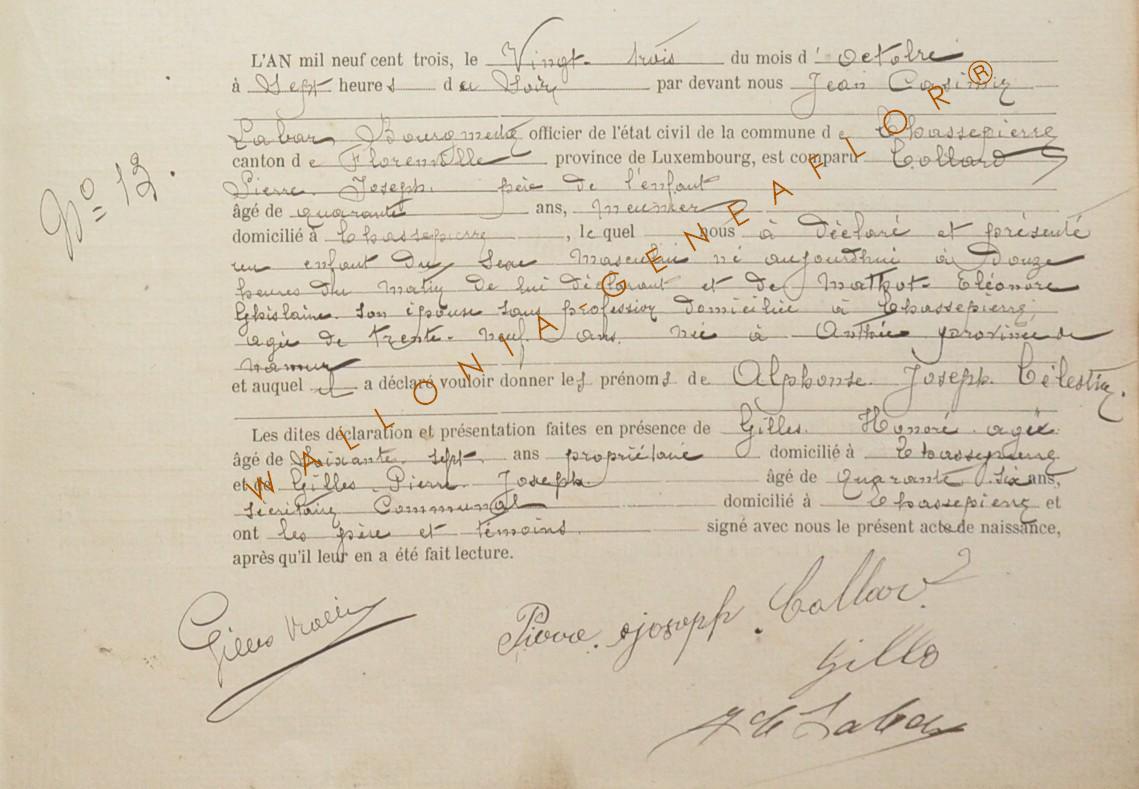 L'AN mil neuf cent trois, le Vingt-trois du mois d'octobre
à Sept heures du Soir par devant nous Jean Casimir
Labar Bourgmestre officier de l'état civil de la commune de Chassepierre
canton de Florenville province de Luxembourg, est comparu Collard
Pierre Joseph père de l'enfant
âgé de quarante ans, meunier
domicilié à Chassepierre, le quel nous à déclaré et présenté
un enfant du sexe Masculin né aujourdhui à Douze
heures du matin de lui déclarant et de Mathot Eléonore
Ghislaine son épouse sans profession domiciliée à Chassepierre,
agée de trente-neuf ans. née à Anthée province de
Namur
et auquel il a déclaré vouloir donner les prénoms de Alphonse Joseph Célestin.
Les dites déclaration et présentation faites en présence de Gilles Honoré agée
âgé de Soixante sept ans propriétaire domicilié à Chassepierre
et de Gilles Pierre Joseph âgé de Quarante Six ans,
Sécritaire Communal domicilié à Chassepierre et
ont les père et témoins signé avec nous le présent acte de naissance,
après qu'il leur en a été fait lecture.
No 12.
Gilles
Pierre Joseph Collard
Gilles
J C Labar
WALLONIA-GENEAFLOR®